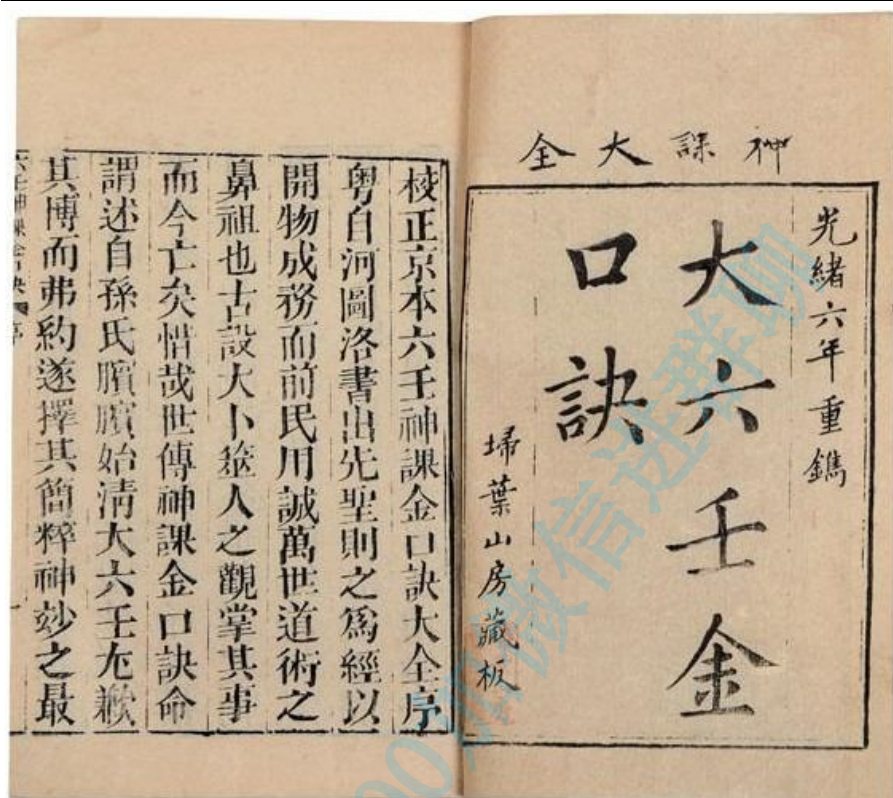 神課大全
光緒六年重鐫
大六壬金
口訣
埽葉山房藏板
校正京本六壬神課金口訣大全序
粵自河圖洛書出先聖則之爲經以
開物成務而前民用誠萬世道術之
鼻祖也古設大卜筮人之觀掌其事
而今亡矣惜哉世傳神課金口訣命
謂述自孫氏臏臏始淸大六壬尨歉
其博而弗約遂擇其簡粹神玅之最
六壬神課金口訣 序 一